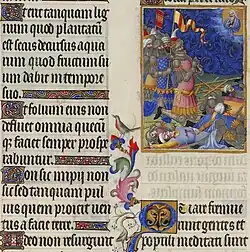 tanquam lig
num quod plantatū
est secus decursus aqua
rum quod fructum su
um dabit in tempore
suo.
Et folium eius non
defluet omnia quecū
faciet prospe
rabuntur.
Non sic impij non
sic sed tanquam pul
uis quem proicit uen
tus a facie terre.
Ideo non resurgunt
Quare fremue
runt gentes et
populi meditati s